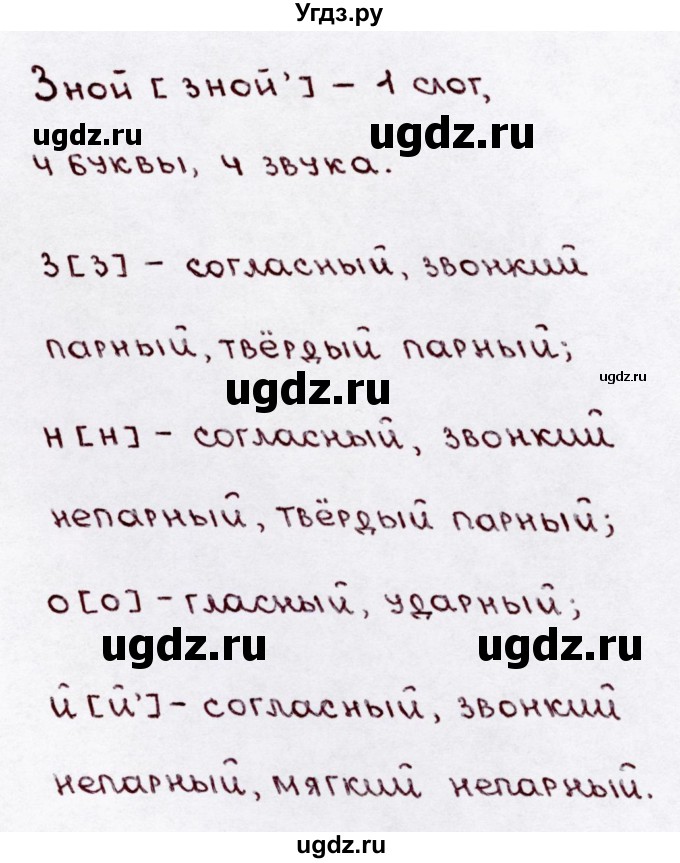 Угдз.ру
Зной [зной’] – 1 слог,
ugdz.ru
ugdz.ru
4 буквы, 4 звука.
з [з] – согласный, звонкий
парный, твёрдый парный;
ugdz.ru
ugdz.ru
н [н] – согласный, звонкий
непарный, твёрдый парный;
о [о] – гласный, ударный;
ugdz.ru
ugdz.ru
й [й’] – согласный, звонкий
непарный, мягкий непарный.
ugdz.ru